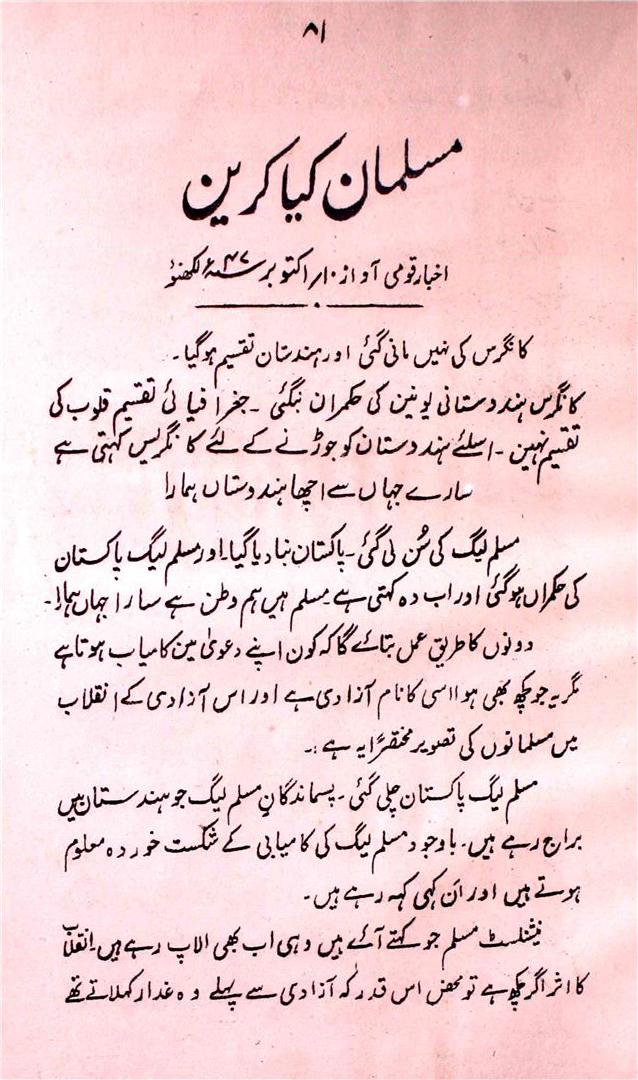 ۸۱
مسلمان کیا کرین
اخبار قومی آواز ۱۰؍ اکتوبر ۴۷ء لکھنؤ
کانگرس کی نہیں مانی گئی اور ہندستان تقسیم ہو گیا۔
کانگرس ہندوستانی یونین کی حکمران بنگئی ۔ جغرافیائی تقسیم قلوب کی
تقسیم نہین ۔ اسلئے ہندوستان کو جوڑنے کے لئے کانگریس کہتی ہے
سارے جہاں سے اچھا ہندوستاں ہمارا
مسلم لیگ کی سُن لی گئی ۔ پاکستان بنا دیا گیا۔ اور مسلم لیگ پاکستان
کی حکمراں ہو گئی اور اب وہ کہتی ہے۔ مسلم ہیں ہم وطن ہے سارا جہاں ہمارا۔
دونوں کا طریق عمل بتائے گا کہ کون اپنے دعویٰ مین کامیاب ہوتا ہے
مگر یہ جو کچھ بھی ہوا اسی کا نام آزادی ہے اور اس آزادی کے انقلاب
میں مسلمانوں کی تصویر مختصرًا یہ ہے:۔
مسلم لیگ پاکستان چلی گئی ۔ پسماندگانِ مسلم لیگ جو ہندستان میں
براج رہے ہیں۔ باوجود مسلم لیگ کی کامیابی کے شکست خوردہ معلوم
ہوتے ہیں اور اَن کہی کہہ رہے ہیں۔
نیشنلسٹ مسلم جو کہتے آئے ہیں وہی اب بھی الاپ رہے ہیں۔ انقلاب
کا اثر اگر کچھ ہے تو محض اس قدر کہ آزادی سے پہلے وہ غدار کہلاتے تھے